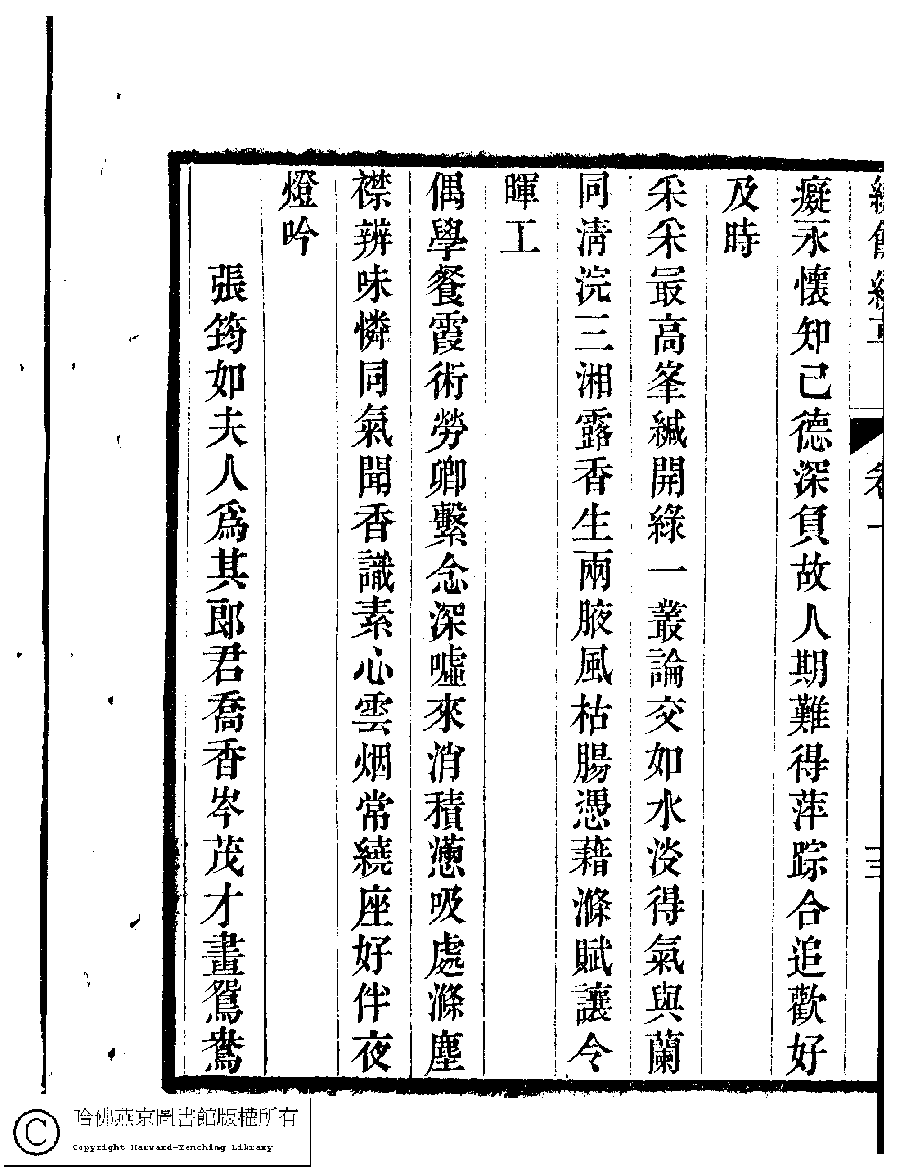 癡永懷知己德深負故人期難得萍踪合追歡好
及時
采采最高峯緘開綠一叢論交如水淡得氣與蘭
同淸浣三湘露香生兩腋風枯腸憑藉滌賦讓令
暉工
偶學餐霞術勞卿繫念深噓來消積懣吸處滌塵
襟辨味憐同氣聞香識素心雲烟常繞座好伴夜
燈吟
張筠如夫人爲其郎君喬香岑茂才畫鴛鴦
哈佛燕京圖書館版權所有
Copyright Harvard-Yenching Library